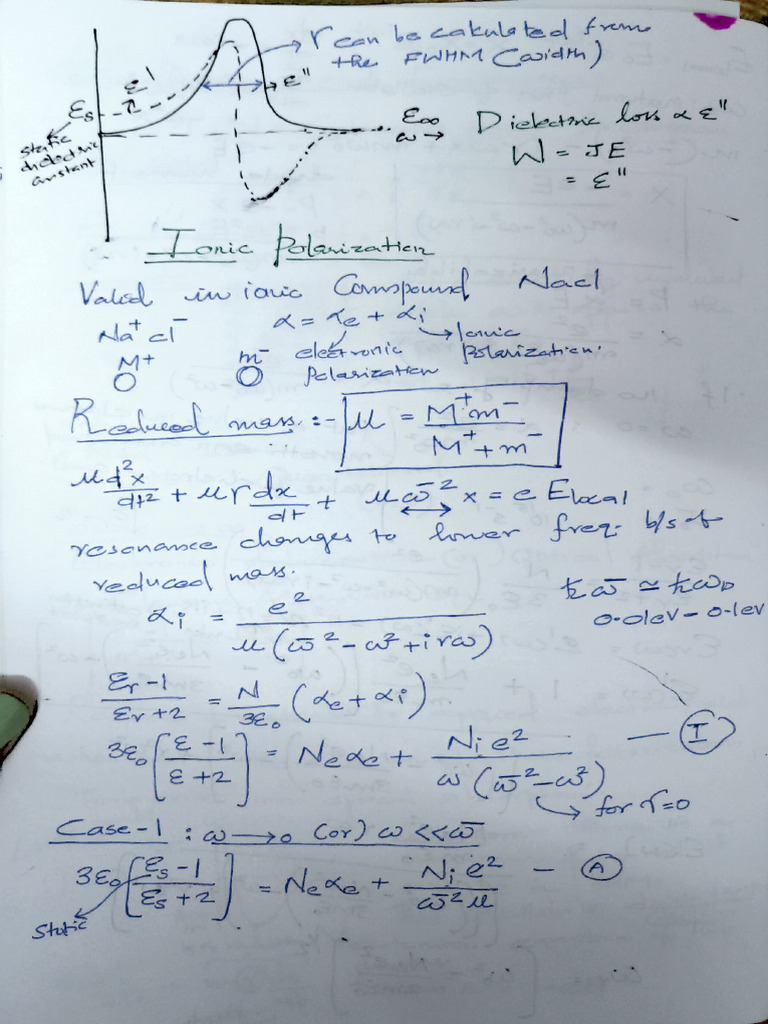 r can be calculated from
the FWHM (width)
ε'
ε"
εs
static
dielectric
constant
ε∞
ω →
Dielectric loss α ε"
W = JE
= ε"
Ionic Polarization
Valid in ionic Compound NaCl
Na⁺ Cl⁻ α = αe + αi
M⁺ m⁻ electronic polarization → Ionic polarization.
Reduced mass :- μ = M⁺m⁻ / (M⁺ + m⁻)
μ d²x/dt² + μ r dx/dt + μ ω̄² x = e Elocal
resonance changes to lower freq. b/s of
reduced mass.
ħω̄ ≃ ħωD
0.01eV - 0.1eV
αi = e² / μ(ω̄² - ω² + irω)
(εr - 1)/(εr + 2) = N/3ε₀ (αe + αi)
3ε₀ [(ε - 1)/(ε + 2)] = Neαe + Nie² / ω(ω̄² - ω²) — I
→ for r=0
Case-1 : ω → 0 (or) ω << ω̄
3ε₀ [(εs - 1)/(εs + 2)] = Neαe + Nie² / ω̄²μ - A
Static